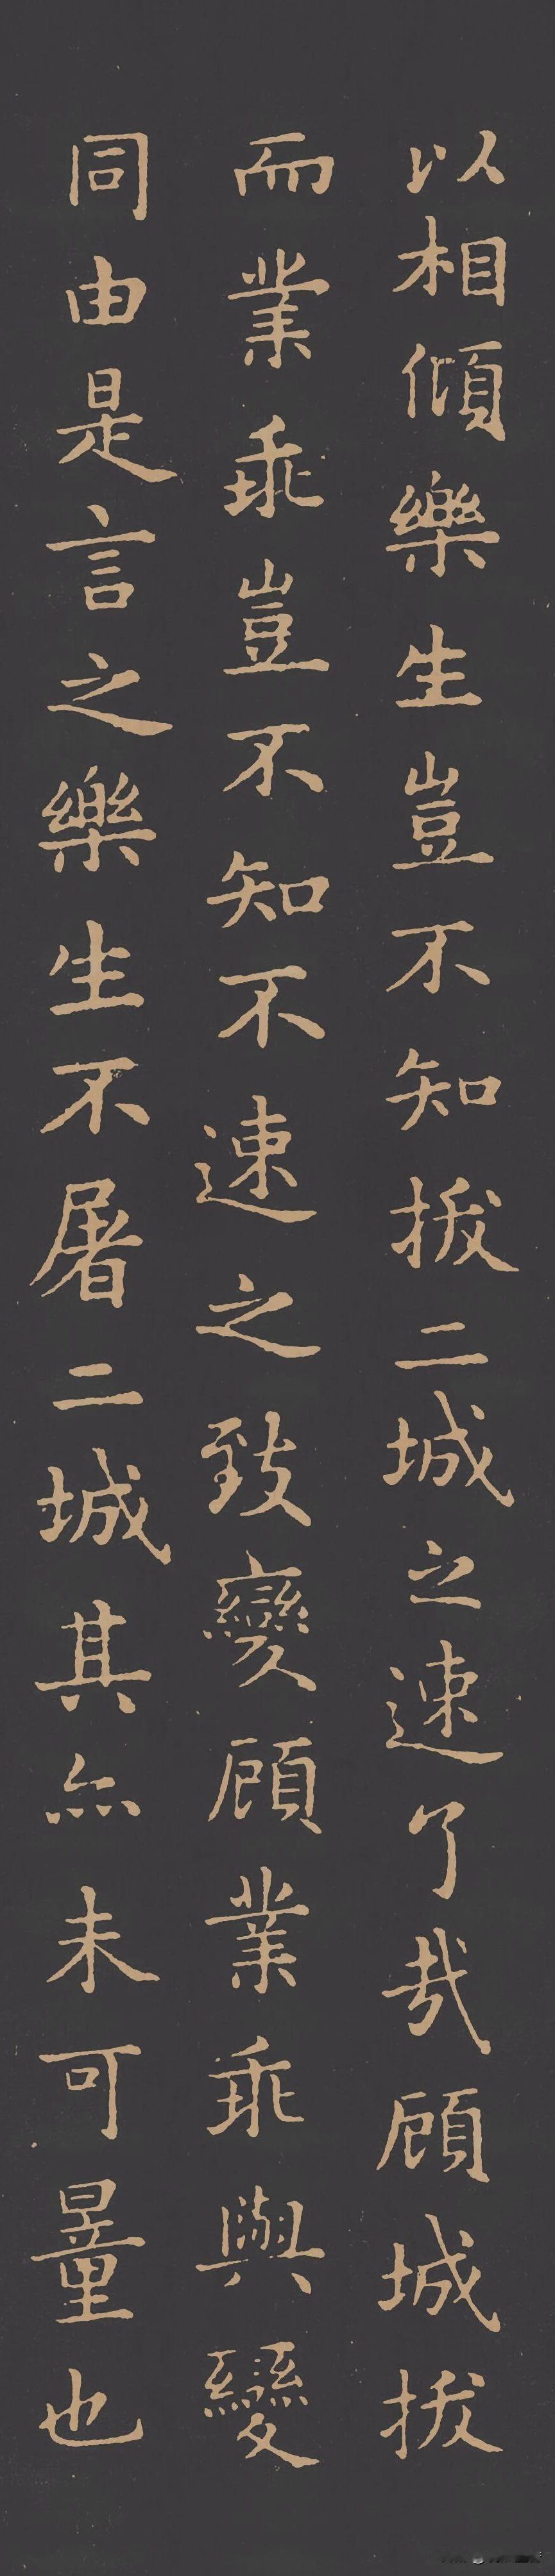 以相傾樂生豈不知拔二城之速了㢤顧城拔
而業乖豈不知不速之致變顧業乖與變
同由是言之樂生不屠二城其亦未可量也